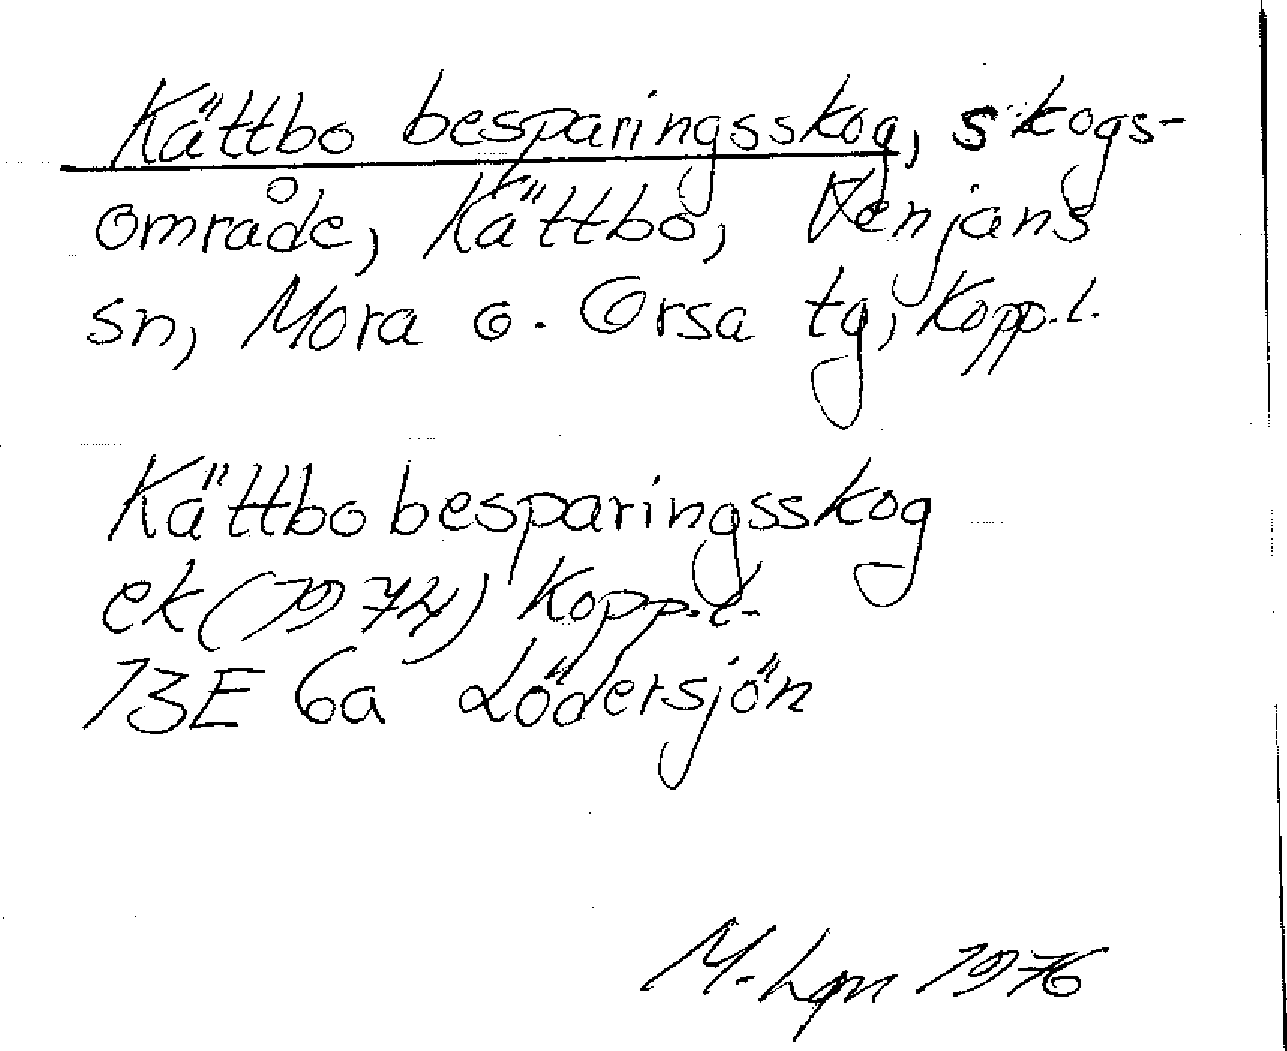 Kättbo besparingsskog, skogs-
område, Kättbo, Venjans
sn, Mora o. Orsa tg, Kopp.l.
Kättbo besparingsskog
ek (1974) Kopp.l.
13E 6a Lödersjön
M. Lgn 1976